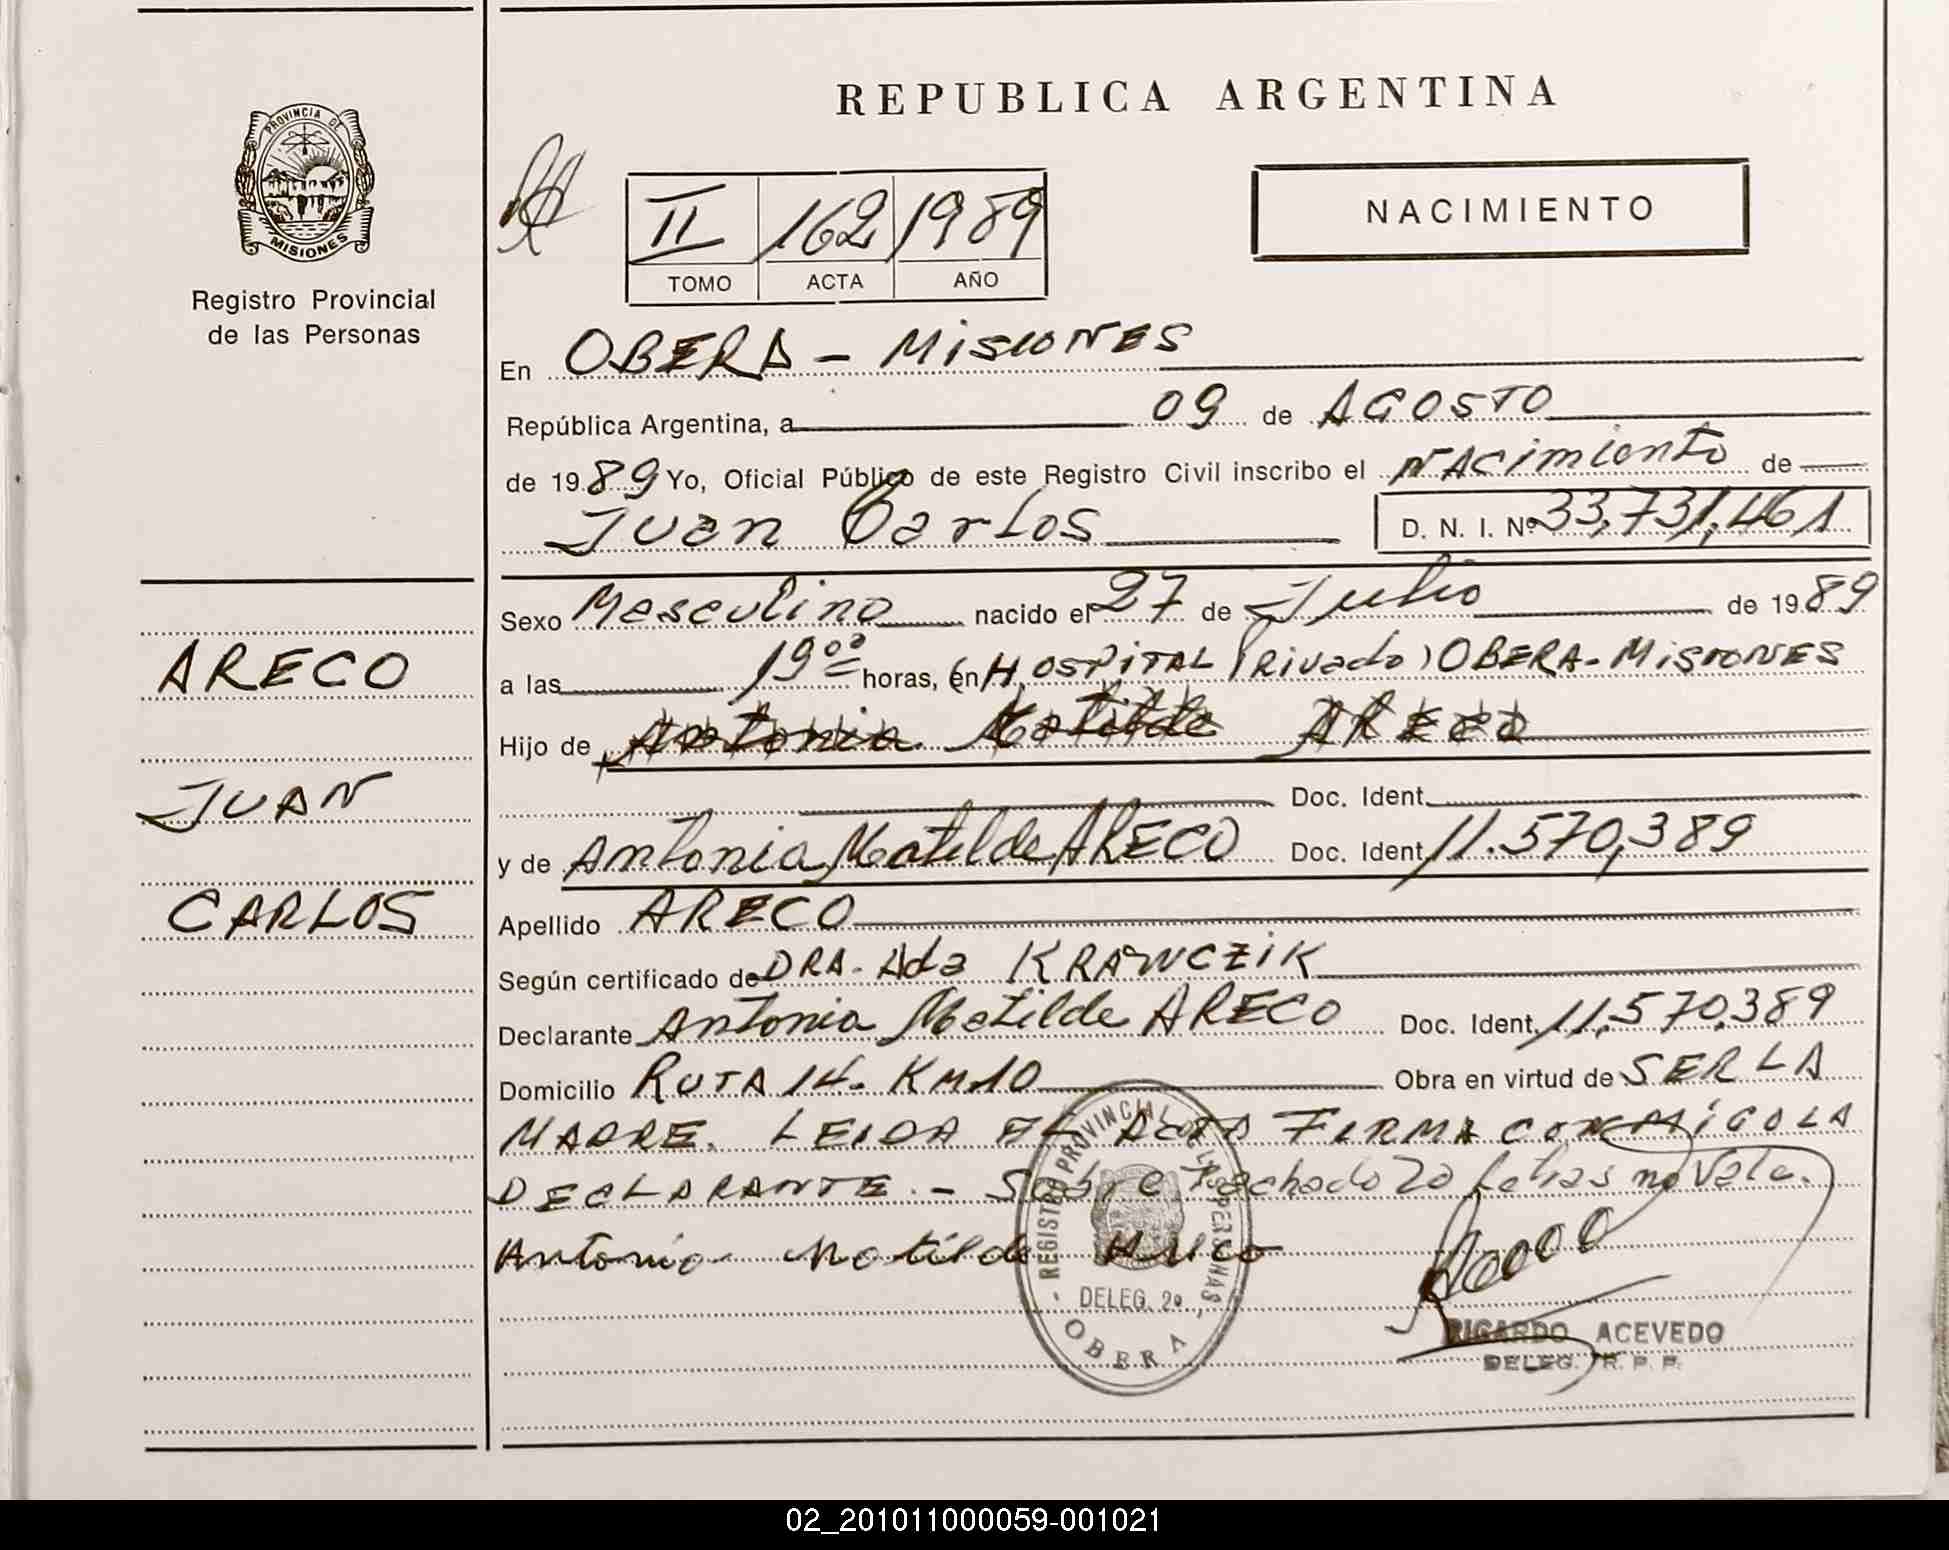 REPUBLICA ARGENTINA
PROVINCIA DE MISIONES
Registro Provincial
de las Personas
II 162 1989
TOMO ACTA AÑO
NACIMIENTO
En OBERA - MISIONES
República Argentina, a 09 de AGOSTO
de 1989 Yo, Oficial Público de este Registro Civil inscribo el NACimiento de
Juan Carlos D. N. I. Nº 33,731,461
Sexo Masculino nacido el 27 de Julio de 1989
ARECO
a las 19⁰⁰ horas, en H. OSPITAL PRivado) OBERA-MISIONES
Hijo de Antonia Matilde ARECO
JUAN
Doc. Ident.
y de Antonia Matilde ARECO Doc. Ident. 11.570,389
CARLOS
Apellido ARECO
Según certificado de DRA. Ada KRAWCZIK
Declarante Antonia Matilde ARECO Doc. Ident. 11,570,389
Domicilio RUTA 14. KM.10 Obra en virtud de SER LA
MADRE. LEIDA EL ACTA FIRMA CONMIGO LA
DECLARANTE.- Sobre tachado 20 letras no vale.
Antonia Matilde Areco
REGISTRO PROVINCIAL DE LAS PERSONAS
DELEG. 2º
OBERA
RICARDO ACEVEDO
DELEG. R. P. P.
02_201011000059-001021